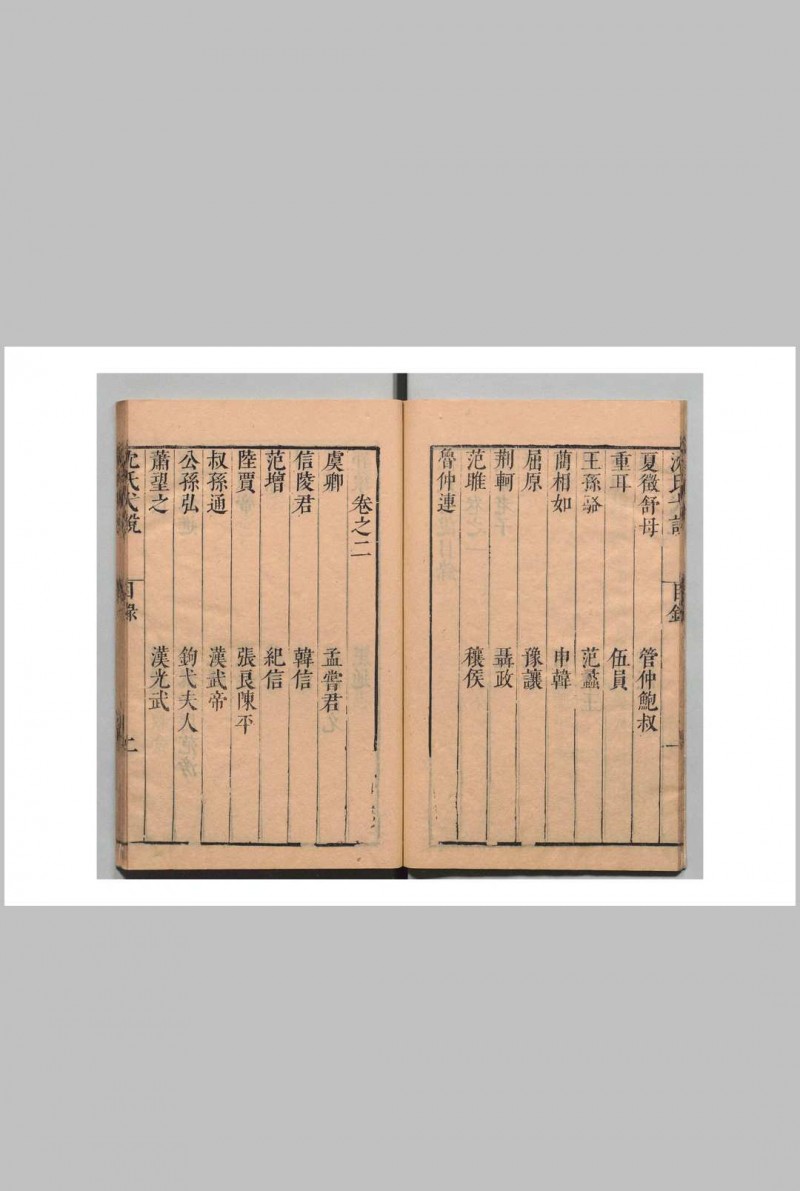 沈氏弋說 目錄 一
夏徵舒母 管仲鮑叔
重耳 伍員
王孫 范蠡
藺相如 申韓
屈原 豫讓
荆軻 聶政
范雎 穰侯
魯仲連
卷之二
虞卿 孟嘗君
信陵君 韓信
范增 紀信
陸賈 張良陳平
叔孫通 漢武帝
公孫弘 鉤弋夫人
蕭望之 漢光武
沈氏弋說 目錄 二